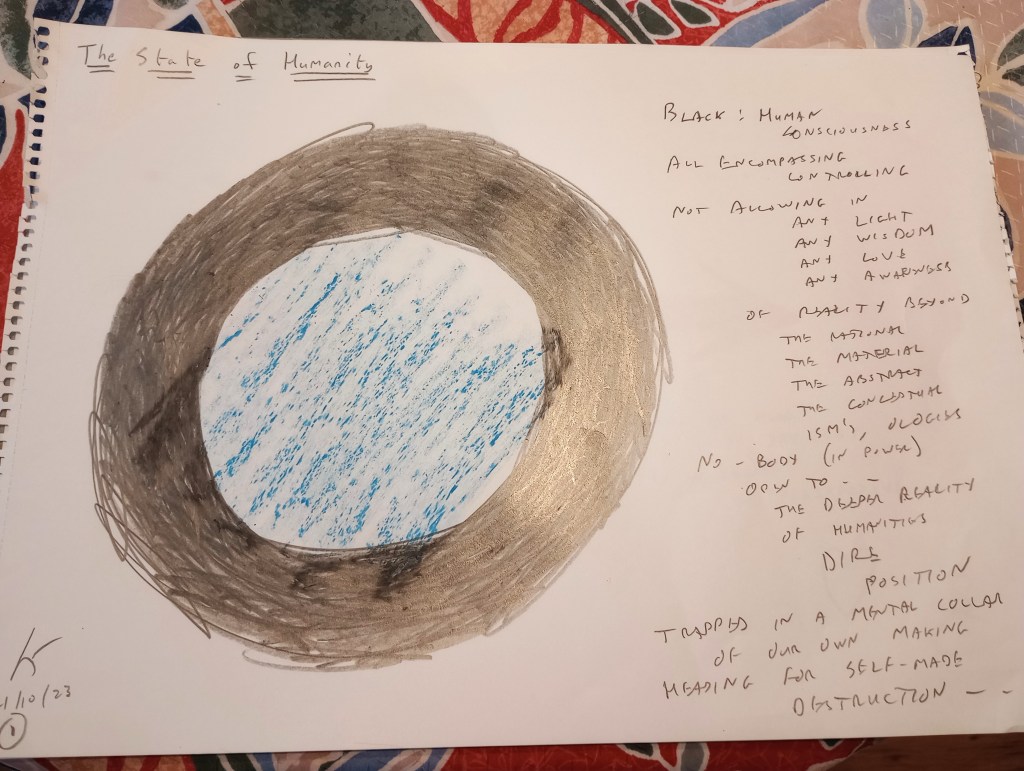 The State of Humanity
BLACK : HUMAN
CONSCIOUSNESS
ALL ENCOMPASSING
CONTROLLING
NOT ALLOWING IN
ANY LIGHT
ANY WISDOM
ANY LOVE
ANY AWARNESS
OF REALITY BEYOND
THE RATIONAL
THE MATERIAL
THE ABSTRACT
THE CONCEPTUAL
ISM'S, OLOGIES
NO - BODY (IN POWER)
OPEN TO - -
THE DEEPER REALITY
OF HUMANITIES
DIRE
POSITION
TRAPPED IN A MENTAL COLLAR
OF OUR OWN MAKING
HEADING FOR SELF-MADE
DESTRUCTION - -
1/10/23
1